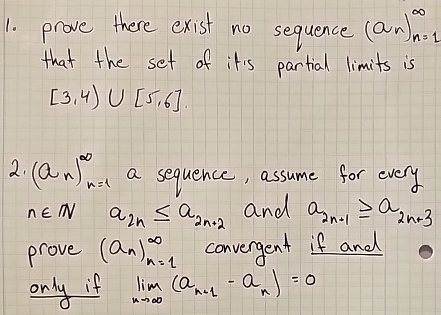 1. prove there exist no sequence (a_n)_{n=1}^∞
that the set of it's partial limits is
[3,4) ∪ [5,6].
2. (a_n)_{n=1}^∞ a sequence, assume for every
n∈ℕ a_{2n} ≤ a_{2n+2} and a_{2n+1} ≥ a_{2n+3}
prove (a_n)_{n=1}^∞ convergent if and
only if lim_{n→∞} (a_{n+1} - a_n) = 0